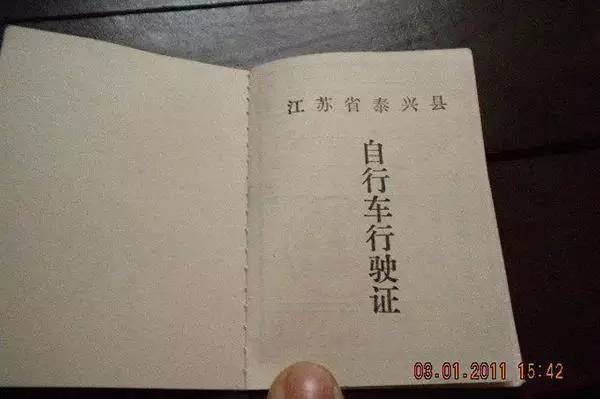 江苏省泰兴县
自行车行驶证
03.01.2011 15:42